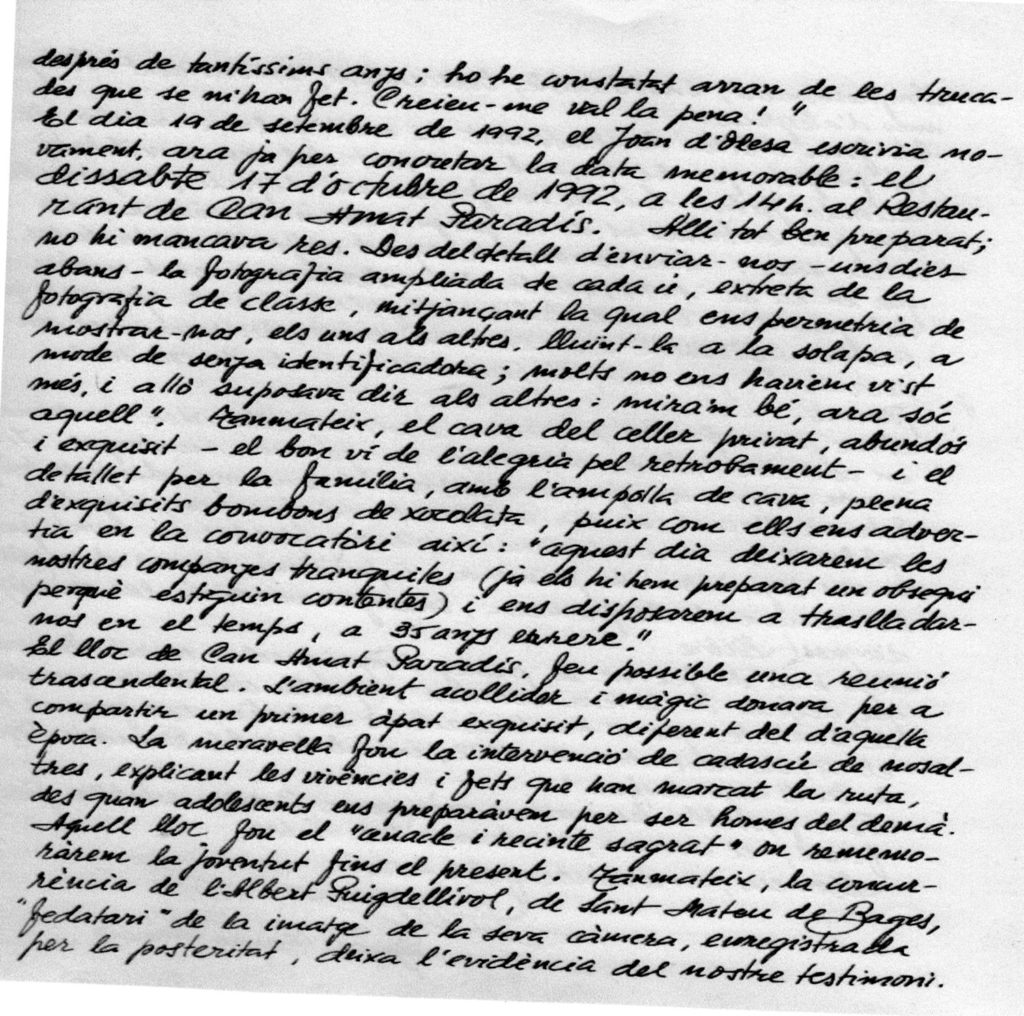 després de tantíssims anys; ho he constatat arran de les truca-
des que se n'han fet. Creieu-me val la pena!"
El dia 19 de setembre de 1992, el Joan d'Olesa escrivia no-
vament, ara ja per concretar la data memorable: el
dissabte 17 d'octubre de 1992, a les 14h. al Restau-
rant de Can Amat Paradís. Allí tot ben preparat;
no hi mancava res. Des del detall d'enviar-nos - uns dies
abans - la fotografia ampliada de cada u, extreta de la
fotografia de classe, mitjançant la qual ens permetria de
mostrar-nos, els uns als altres, lluint-la a la solapa, a
mode de senya identificadora; molts no ens havíem vist
més, i allò suposava dir als altres: mira'm bé, ara sóc
aquell". Tanmateix, el cava del celler privat, abundós
i exquisit - el bon ví de l'alegria pel retrobament - i el
detallet per la família, amb l'ampolla de cava, plena
d'exquisits bombons de xocolata, puix com ells ens adver-
tia en la convocatòri així: "aquest dia deixarem les
nostres companyes tranquiles (ja els hi hem preparat un obsequi
perquè estiguin contentes) i ens disposarem a traslladar-
nos en el temps, a 35 anys enrere."
El lloc de Can Amat Paradís, feu possible una reunió
trascendental. L'ambient acollidor i màgic donava per a
compartir un primer àpat exquisit, diferent del d'aquella
època. La meravella fou la intervenció de cadascú de nosal-
tres, explicant les vivències i fets que han marcat la ruta,
des quan adolescents ens preparàvem per ser homes del demà.
Aquell lloc fou el "cenacle i recinte sagrat" on rememo-
ràrem la joventut fins el present. Tanmateix, la concur-
rència de l'Albert Puigdellívol, de Sant Mateu de Bages,
"fedatari" de la imatge de la seva càmera, enregistrada
per la posteritat, deixa l'evidència del nostre testimoni.